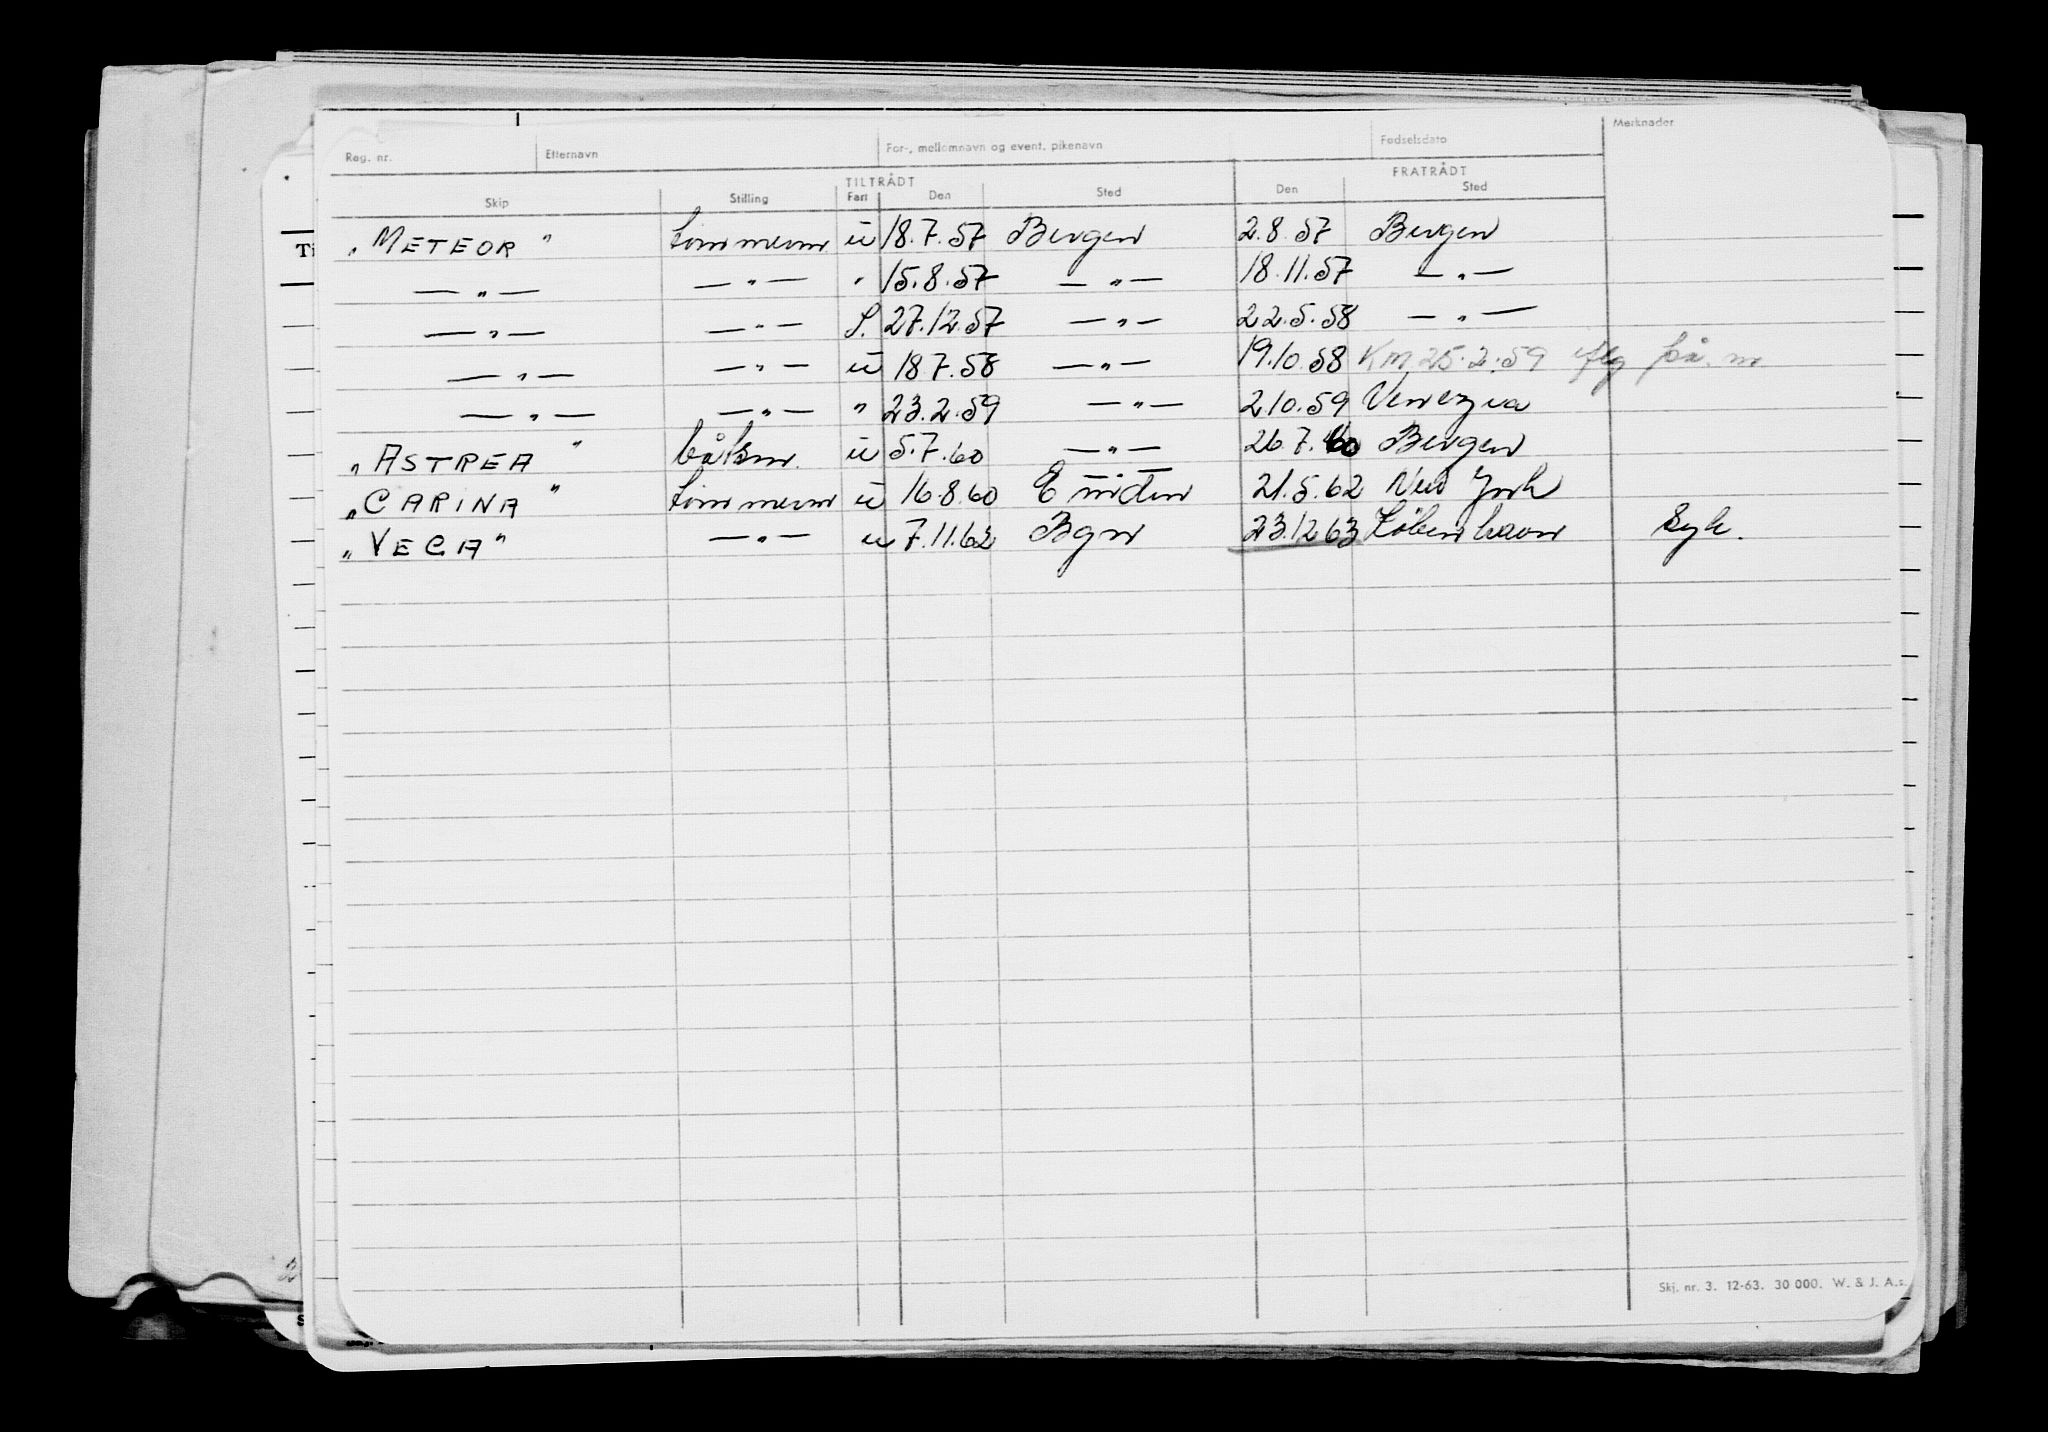 Reg. nr. Etternavn For-, mellomnavn og event. pikenavn Fødselsdato Merknader
TILTRÅDT FRATRÅDT
Skip Stilling Fart Den Sted Den Sted
„METEOR" tømmerm ü 18.7.57 Bergen 2.8.57 Bergen
—„— —"— " 15.8.57 —„— 18.11.57 —„—
—„— —"— S. 27.12.57 —„— 22.5.58 —„—
—„— —"— ü 18.7.58 —„— 19.10.58 KM 25.2.59 på. m
—„— —„— " 23.2.59 —„— 2.10.59 Venezia
„ASTREA" båtsm. ü 5.7.60 —„— 26.7.60 Bergen
„CARINA" tømmerm ü 16.8.60 Emden 21.5.62 New York
„VEGA" —„— u 7.11.62 Bgn 23.12 63 København Syk.
Skj. nr. 3. 12-63. 30 000. W. & J. A.s.